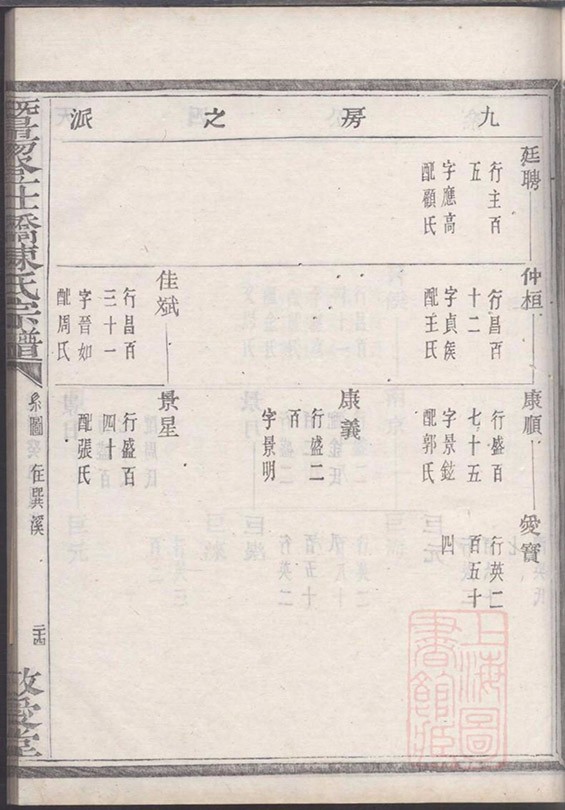 九房之派
廷聘
行主百
五
字應高
配顧氏
仲桓
行昌百
十二
字貞侯
配王氏
康順
行盛百
七十五
字景鉉
配郭氏
愛寶
行英二
百五十
四
康義
行盛二
百
字景明
佳斌
行昌百
三十一
字晉如
配周氏
景星
行盛百
四十
配張氏
系圖 在巽溪
二十四
敬愛堂
上海圖
書館藏